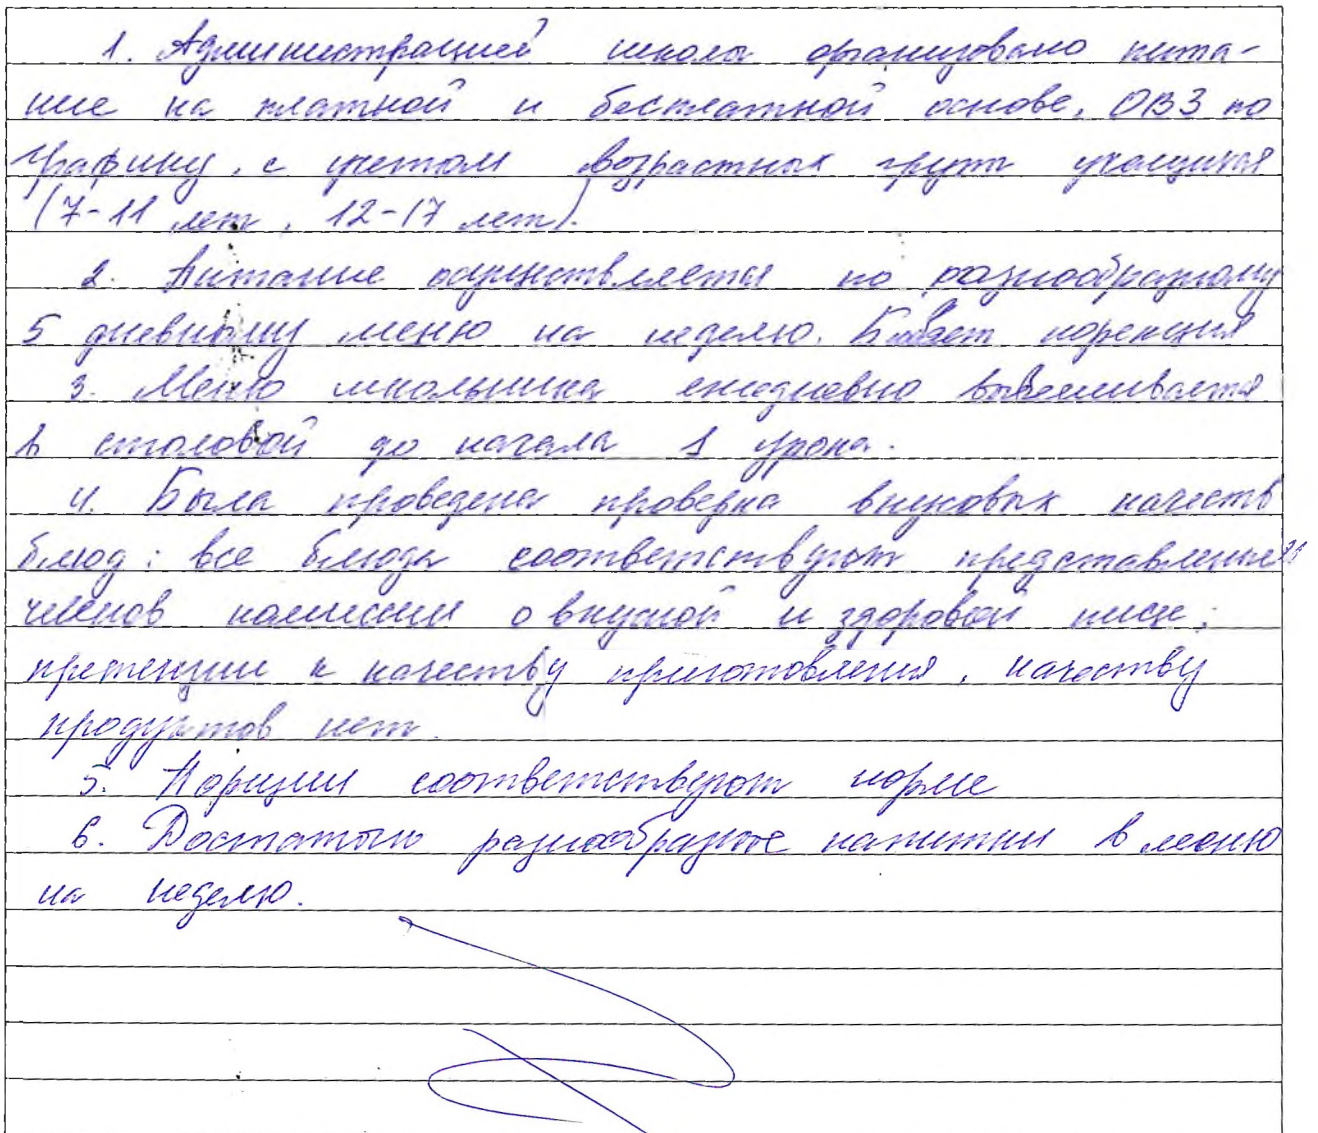 1. Администрацией школа организовано пита-
ние на платной и бесплатной основе, ОВЗ по
графику, с учетом возрастных групп учащихся
(7-11 лет, 12-17 лет).
2. Питание осуществляется по разнообразному
5 дневному меню на неделю. Бывает корекция
3. Меню школьника ежедневно вывешивается
в столовой до начала 1 урока.
4. Была проведена проверка вкусовых качеств
блюд: все блюда соответствуют представлениям
членов комиссии о вкусной и здоровой пище;
претензии к качеству приготовления, качеству
продуктов нет.
5. Порции соответствуют норме
6. Достаточно разнообразные напитки в меню
на неделю.